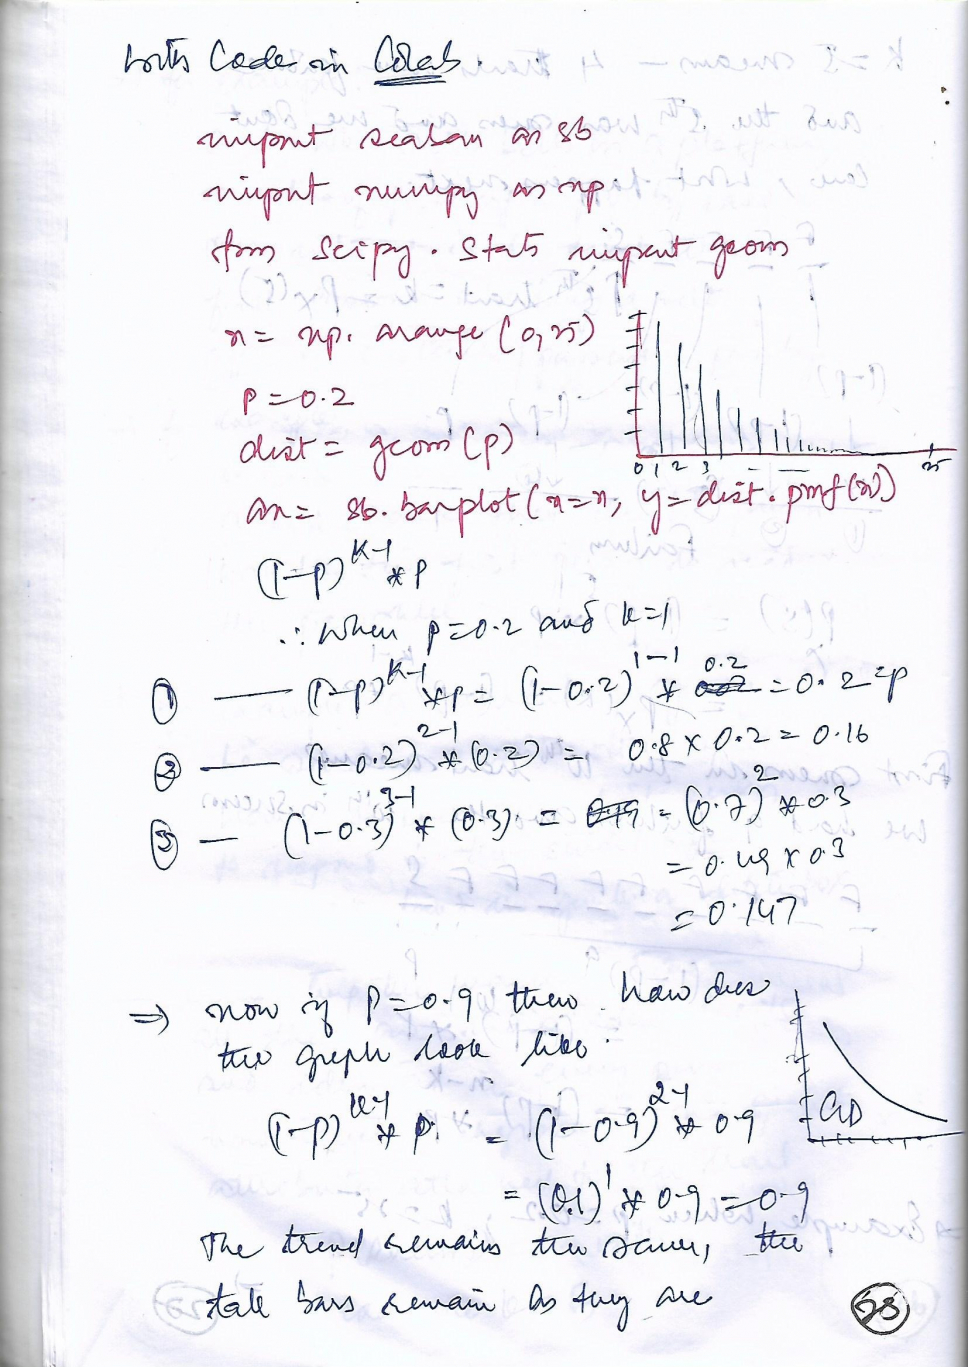 with Code in Colab
import seaban as sb
import numpy as np
from scipy . stats import geom
n = np. arange (0,25)
p = 0.2
dist = geom (p)
0 1 2 3 25
an = sb. barplot (n=n, y= dist . pmf (n))
(1-p)^K-1 * p
∴ when p=0.2 and k=1
① — (1-p)^K-1 * p = (1-0.2)^1-1 * 0.2 = 0.2 = p
② — (1-0.2)^2-1 * (0.2) = 0.8 x 0.2 = 0.16
③ — (1-0.3)^3-1 * (0.3) = = (0.7)^2 * 0.3
= 0.49 x 0.3
= 0.147
⇒ now if P=0.9 then how does
the graph look like.
(1-p)^K-1 * p = (1-0.9)^2-1 * 0.9
GD
= (0.1)^1 * 0.9 = 0.9
The trend remains the same, the
bars remain as they are
28